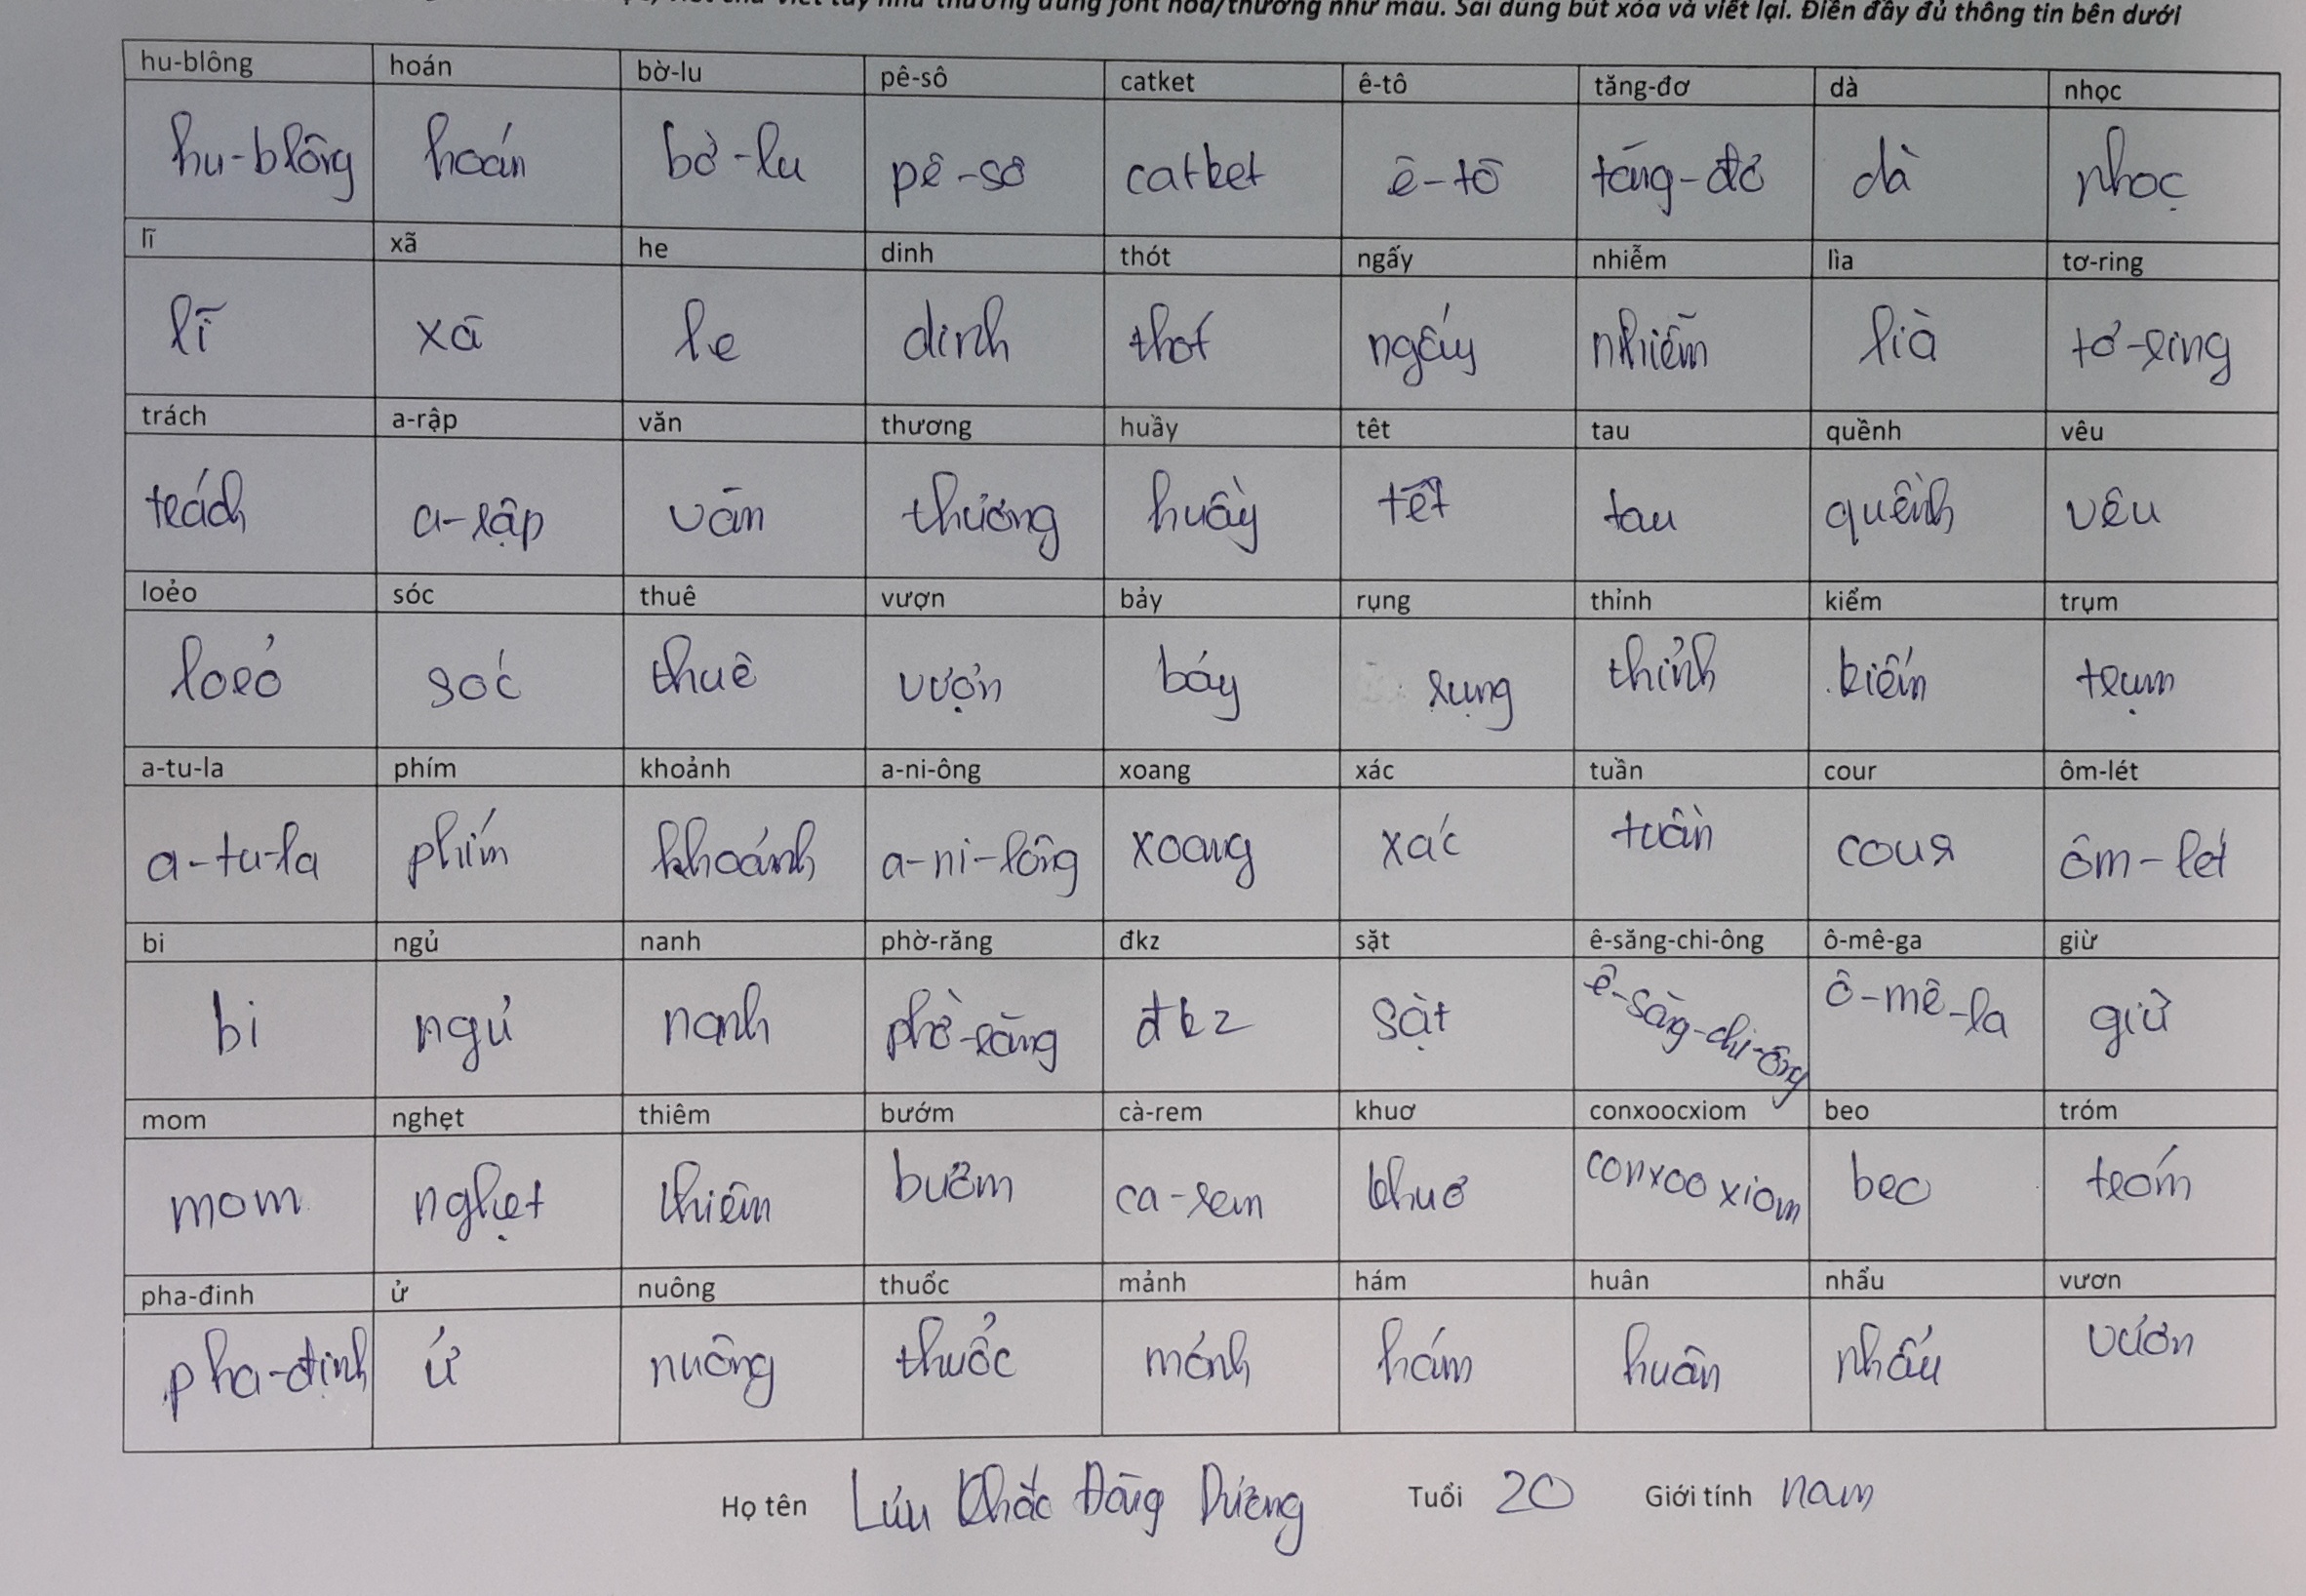 viết chữ viết tay như thường dùng font hoa/thường như mẫu. Sai dùng bút xóa và viết lại. Điền đầy đủ thông tin bên dưới
hu-blông hoán bờ-lu pê-sô catket ê-tô tăng-đơ dà nhọc
hu-blông hoán bờ-lu pê-sô catket ê-tô tăng-đơ dà nhọc
lĩ xã he dinh thót ngấy nhiễm lìa tơ-ring
lĩ xã he dinh thót ngấy nhiễm lìa tơ-ring
trách a-rập văn thương huầy têt tau quềnh vêu
trách a-rập văn thương huầy têt tau quềnh vêu
loẻo sóc thuê vượn bảy rụng thỉnh kiểm trụm
loẻo sóc thuê vượn bảy rụng thỉnh kiểm trụm
a-tu-la phím khoảnh a-ni-ông xoang xác tuần cour ôm-lét
a-tu-la phím khoảnh a-ni-lông xoang xác tuần cour ôm-lét
bi ngủ nanh phờ-răng đkz sặt ê-săng-chi-ông ô-mê-ga giừ
bi ngủ nanh phờ-răng đkz sặt ê-săng-chi-ông ô-mê-la giừ
mom nghẹt thiêm bướm cà-rem khuơ conxoocxiom beo tróm
mom nghẹt thiêm bướm ca-rem khuơ conxooxiom beo tróm
pha-đinh ử nuông thuốc mảnh hám huân nhẩu vươn
pha-định ử nuông thuốc mảnh hám huân nhẩu vươn
Họ tên Lưu Khắc Đăng Dương Tuổi 20 Giới tính nam